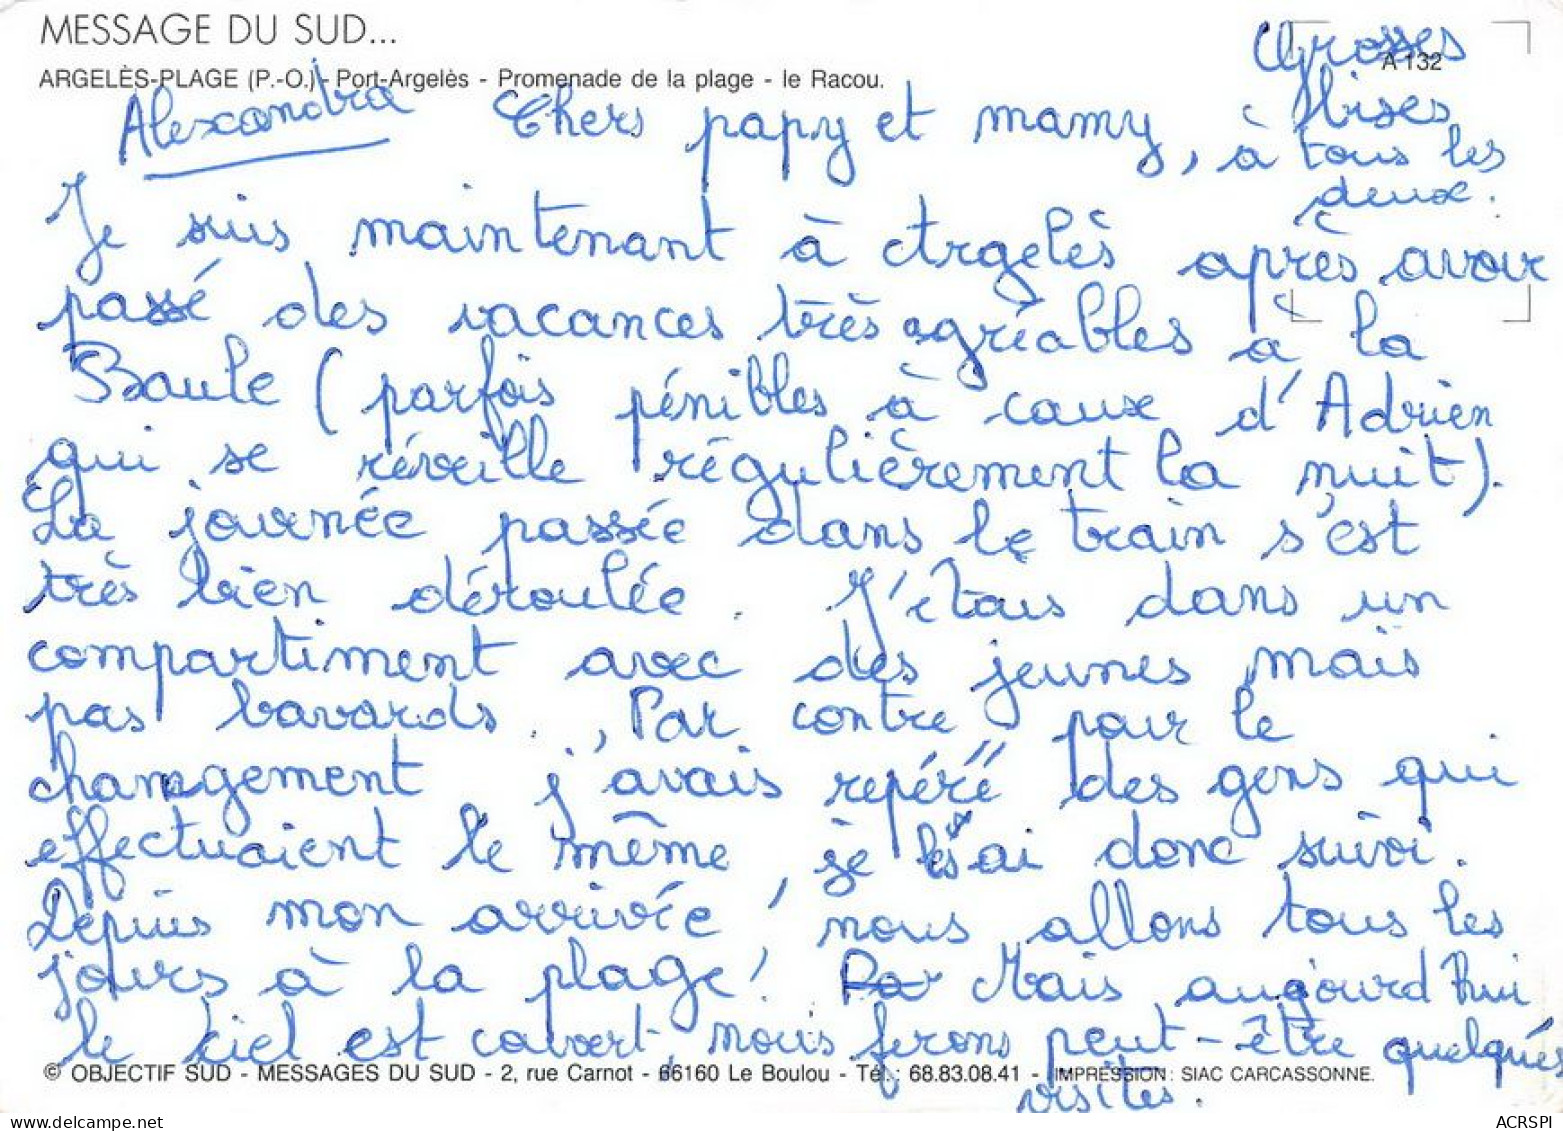 MESSAGE DU SUD...
ARGELÈS-PLAGE (P.-O.) - Port-Argelès - Promenade de la plage - le Racou.
A 132
Alexandra
Chers papy et mamy,
Je suis maintenant à Argelès après avoir
passé des vacances très agréables à la
Baule (parfois pénibles à cause d'Adrien
qui se réveille régulièrement la nuit).
La journée passée dans le train s'est
très bien déroulée. J'étais dans un
compartiment avec des jeunes mais
pas bavards., Par contre pour le
changement j'avais repéré des gens qui
effectuaient le même, je les ai donc suivi.
Depuis mon arrivée, nous allons tous les
jours à la plage! Par Mais aujourd'hui
le ciel est couvert nous ferons peut-être quelques
visites.
Grosses
bises
à tous les
deux.
© OBJECTIF SUD - MESSAGES DU SUD - 2, rue Carnot - 66160 Le Boulou - Tél.: 68.83.08.41 - IMPRESSION: SIAC CARCASSONNE.
www.delcampe.net
ACRSPI